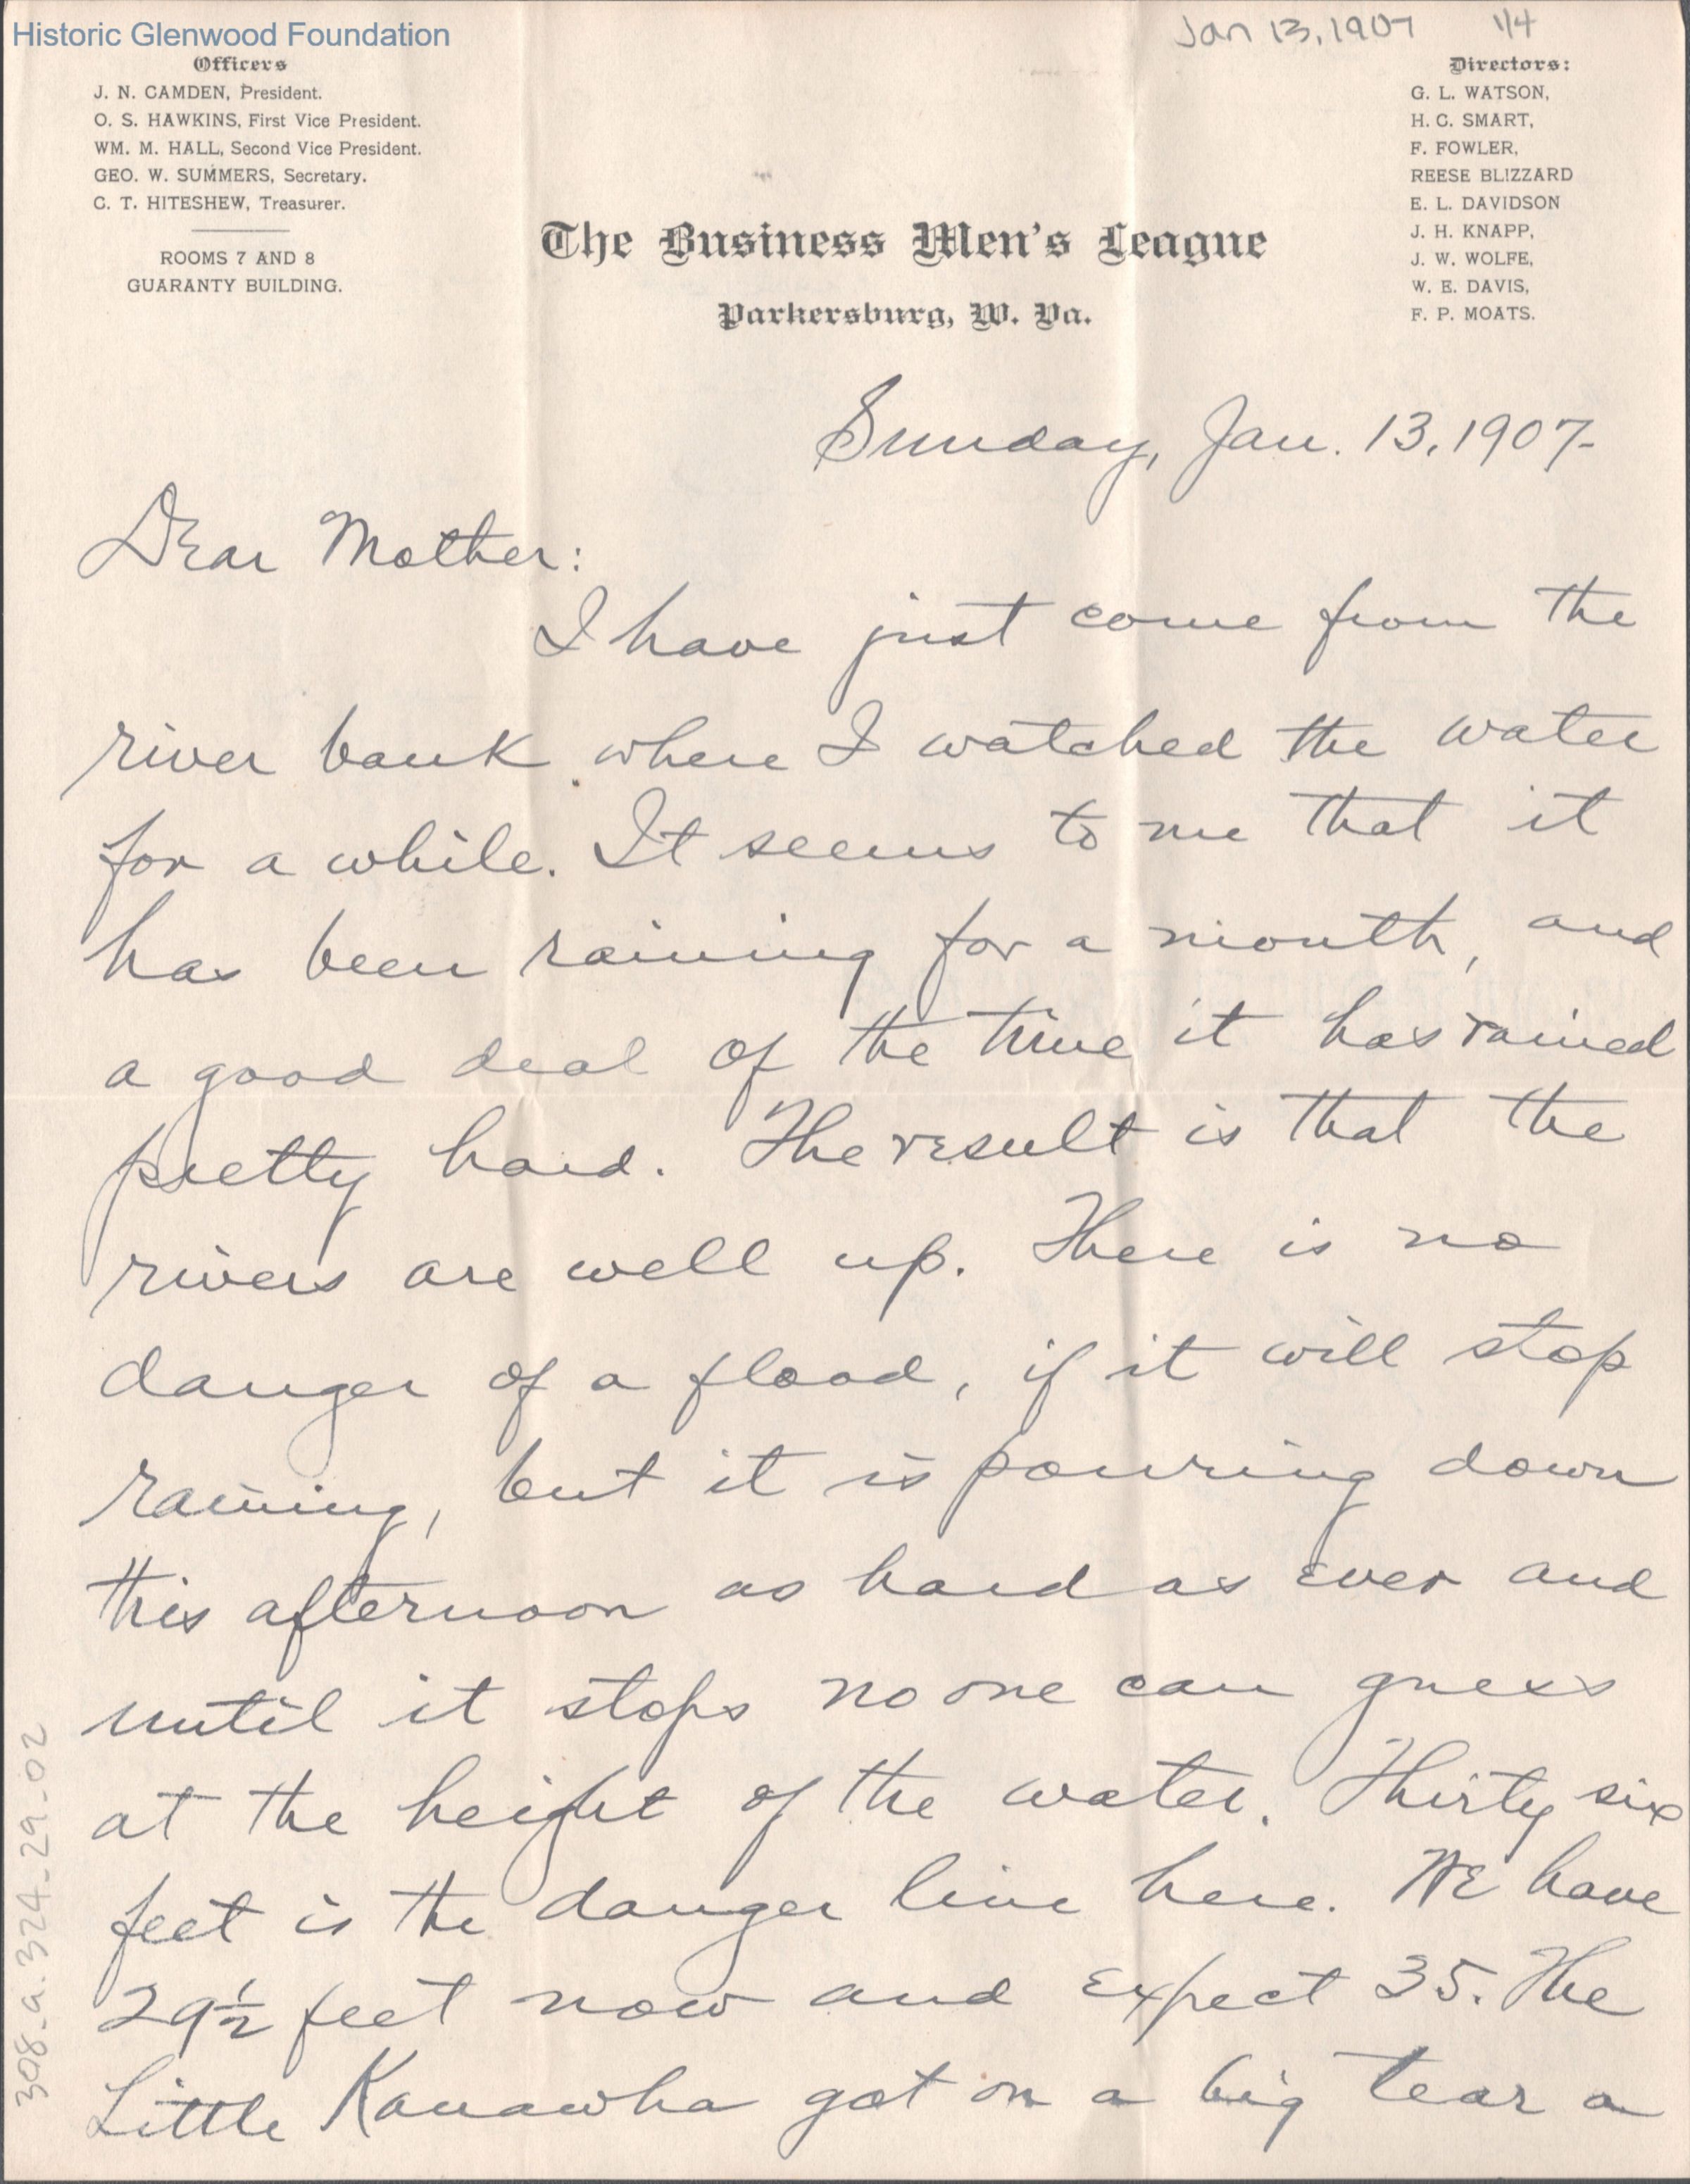 Historic Glenwood Foundation
Jan 13, 1907 1/4
Officers
J. N. CAMDEN, President.
O. S. HAWKINS, First Vice President.
WM. M. HALL, Second Vice President.
GEO. W. SUMMERS, Secretary.
C. T. HITESHEW, Treasurer.
ROOMS 7 AND 8
GUARANTY BUILDING.
Directors:
G. L. WATSON,
H. C. SMART,
F. FOWLER,
REESE BLIZZARD
E. L. DAVIDSON
J. H. KNAPP,
J. W. WOLFE,
W. E. DAVIS,
F. P. MOATS.
The Business Men's League
Parkersburg, W. Va.
Sunday, Jan. 13, 1907-
Dear Mother:
I have just come from the
river bank where I watched the water
for a while. It seems to me that it
has been raining for a month, and
a good deal of the time it has rained
pretty hard. The result is that the
rivers are well up. There is no
danger of a flood, if it will stop
raining, but it is pouring down
this afternoon as hard as ever and
until it stops no one can guess
at the height of the water. Thirty six
feet is the danger line here. We have
29½ feet now and expect 35. The
Little Kanawha got on a big tear a
308-a.324-29-02